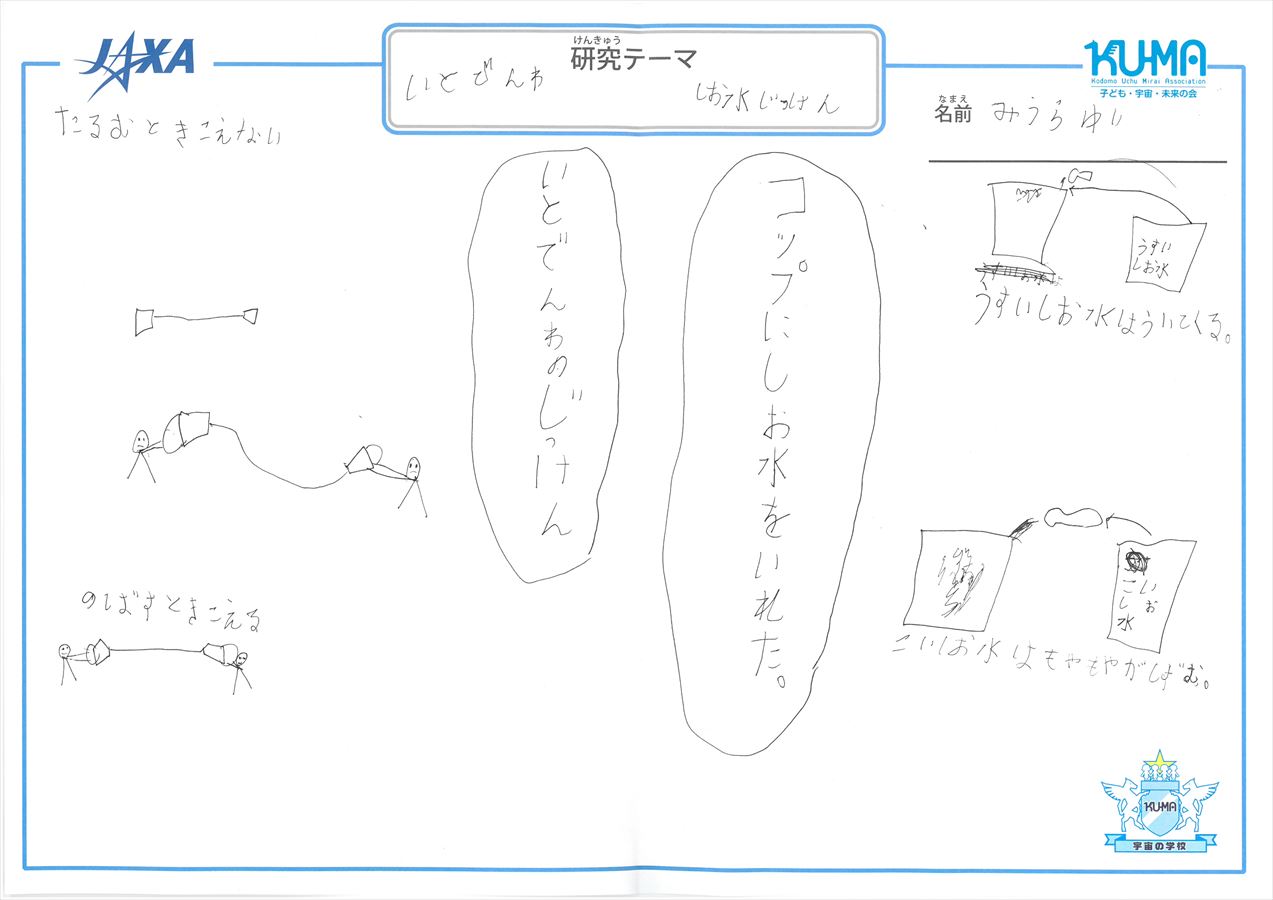 JAXA
けんきゅう
研究テーマ
いとでんわ
しお水じっけん
KUMA
Kodomo Uchu Mirai Association
子ども・宇宙・未来の会
なまえ
名前 みうらゆい
うすい
しお水
うすいしお水はういてくる。
こいしお水
こいしお水はもやもやがしずむ。
コップにしお水をいれた。
いとでんわのじっけん
たるむときこえない
のばすときこえる
KU-MA
宇宙の学校